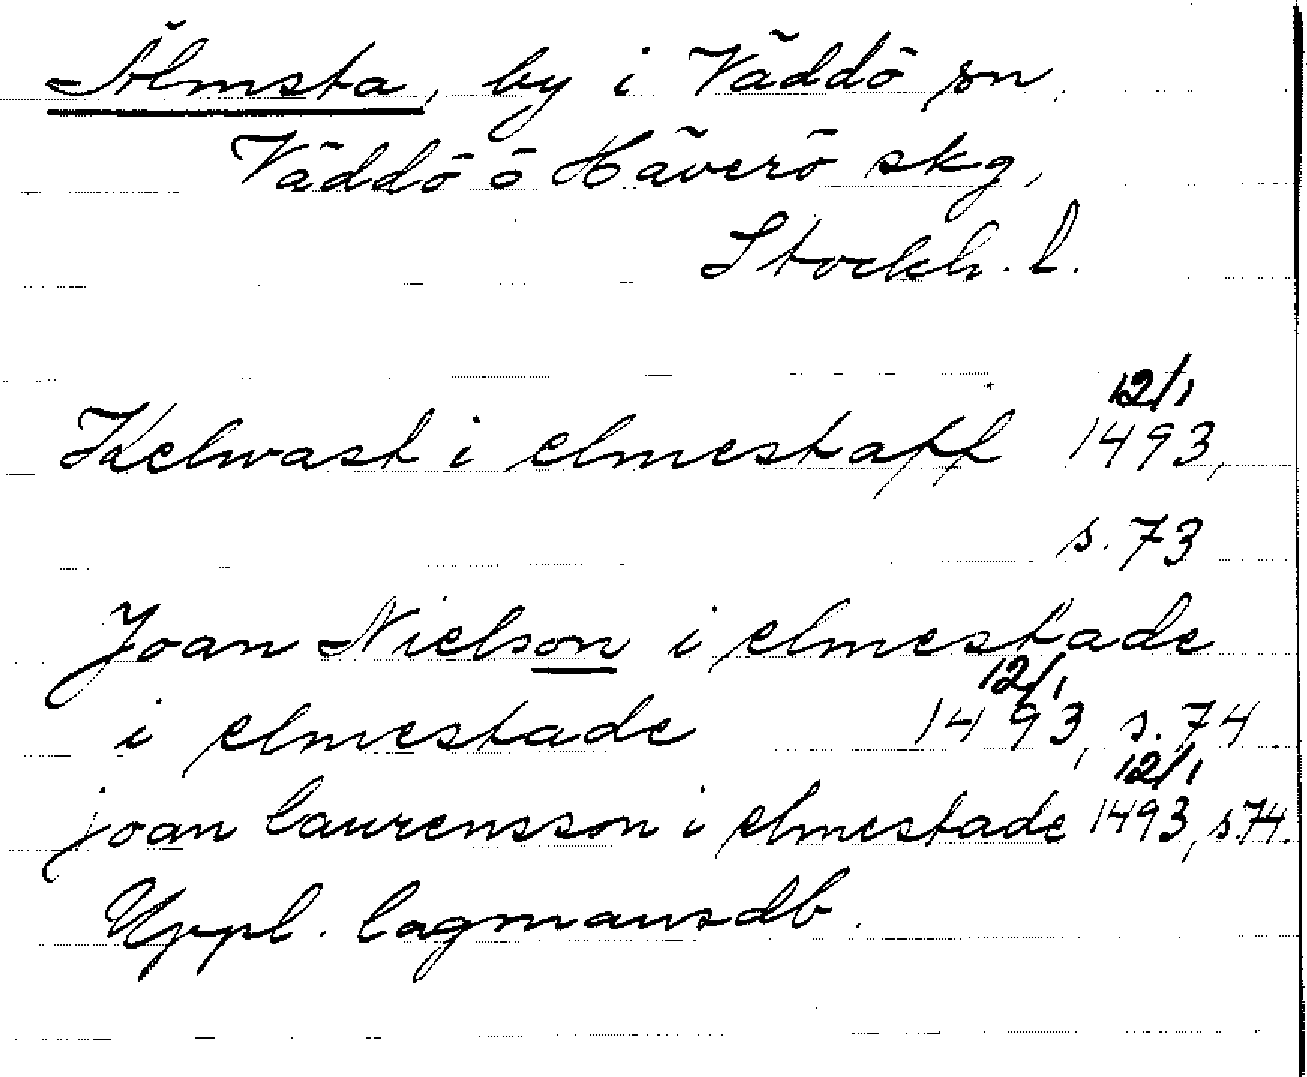 Älmsta, by i Väddö sn,
Väddö o Häverö skg,
Stockh. l.
12/1
Kelwast i elmestaff 1493,
s. 73
Joan Nielson i elmestade
12/1
i elmestade 1493, s. 74
12/1
joan laurensson i elmestade 1493, s. 74.
Uppl. lagmansdb.